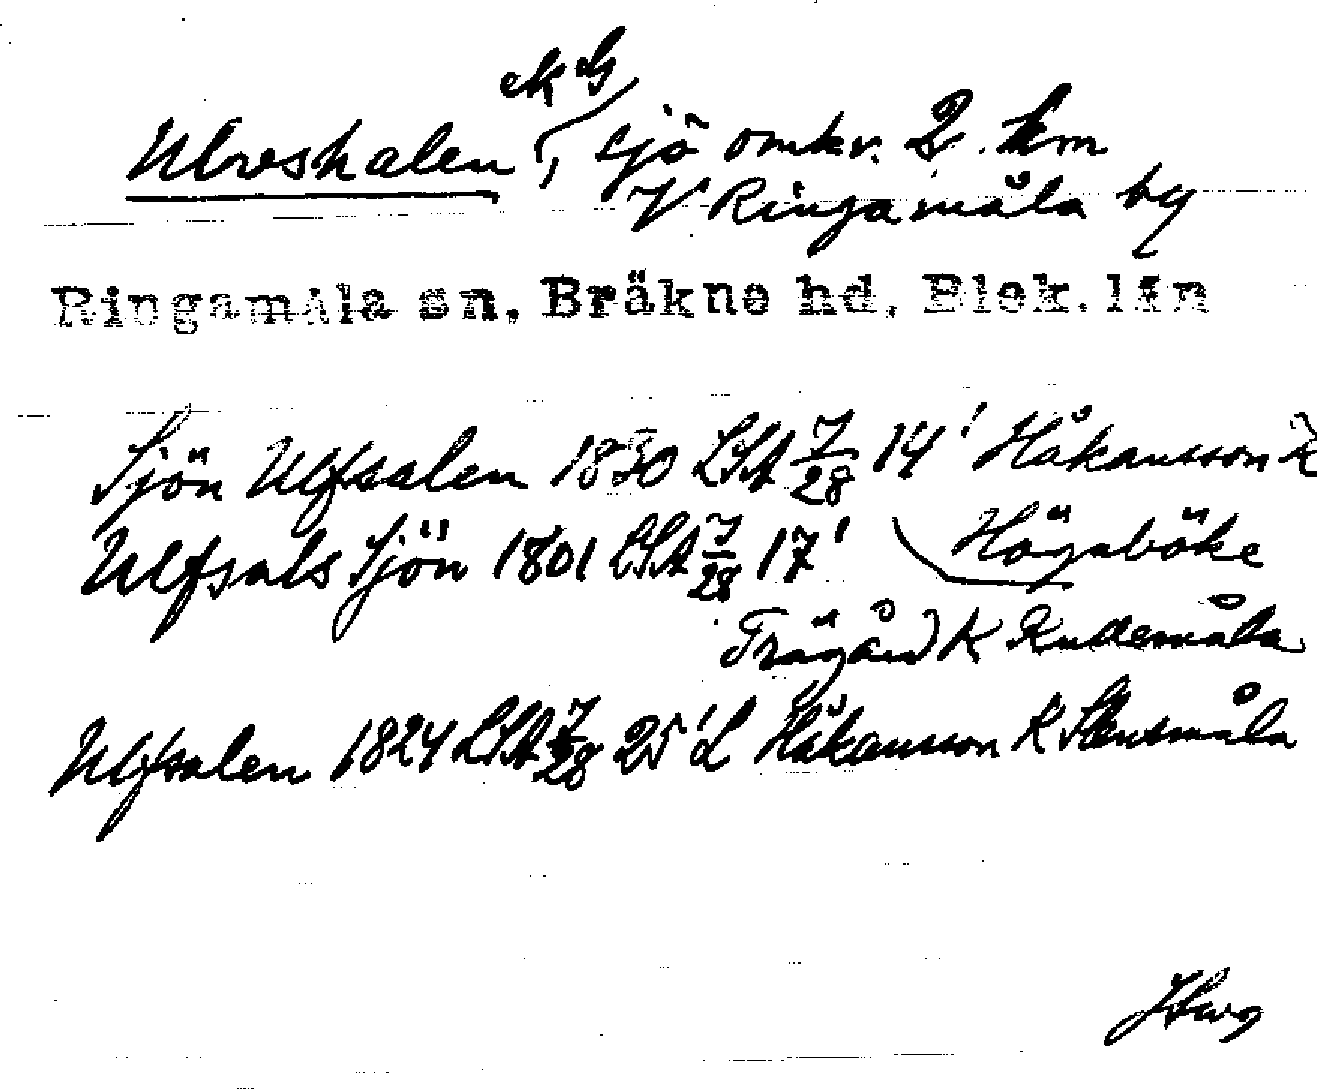 ek G
Ulveshalen, sjö omkr. 2 km
V Ringamåla by
Ringamåla sn, Bräkne hd, Blek. län
Sjön Ulfsalen 1830 LSA 7/28 14' Håkansson K
Ulfsals Sjön 1801 LSA 7/28 17' Högaböke
Trägård K Kullemåla
Ulfsalen 1824 LSA 7/28 25' L Håkansson K